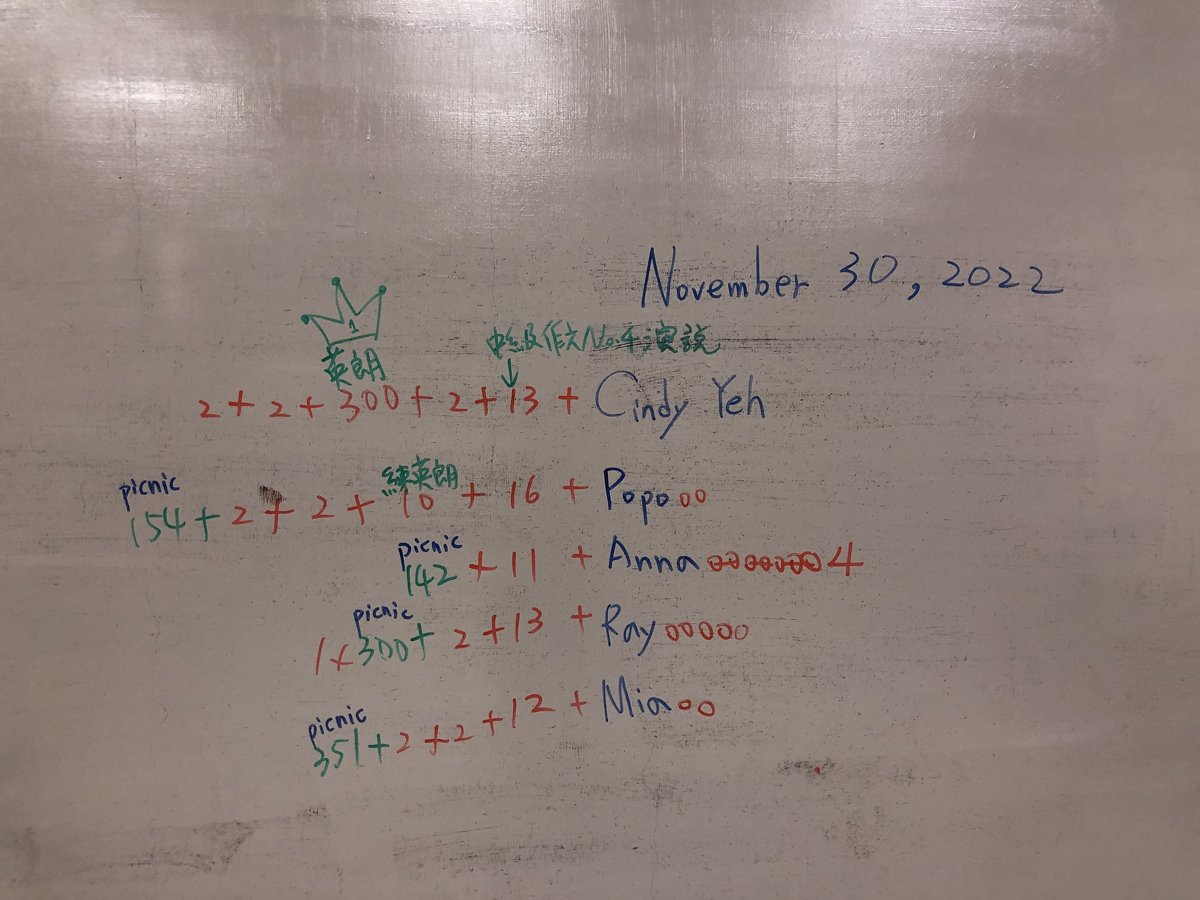 November 30, 2022
1
英朗
中級作文No.4演說
2 + 2 + 300 + 2 + 13 + Cindy Yeh
練英朗
picnic
154 + 2 + 2 + 10 + 16 + Popo oo
picnic
142 + 11 + Anna oooooooo 4
picnic
1 x 300 + 2 + 13 + Ray ooooo
picnic
351 + 2 + 2 + 12 + Mia oo